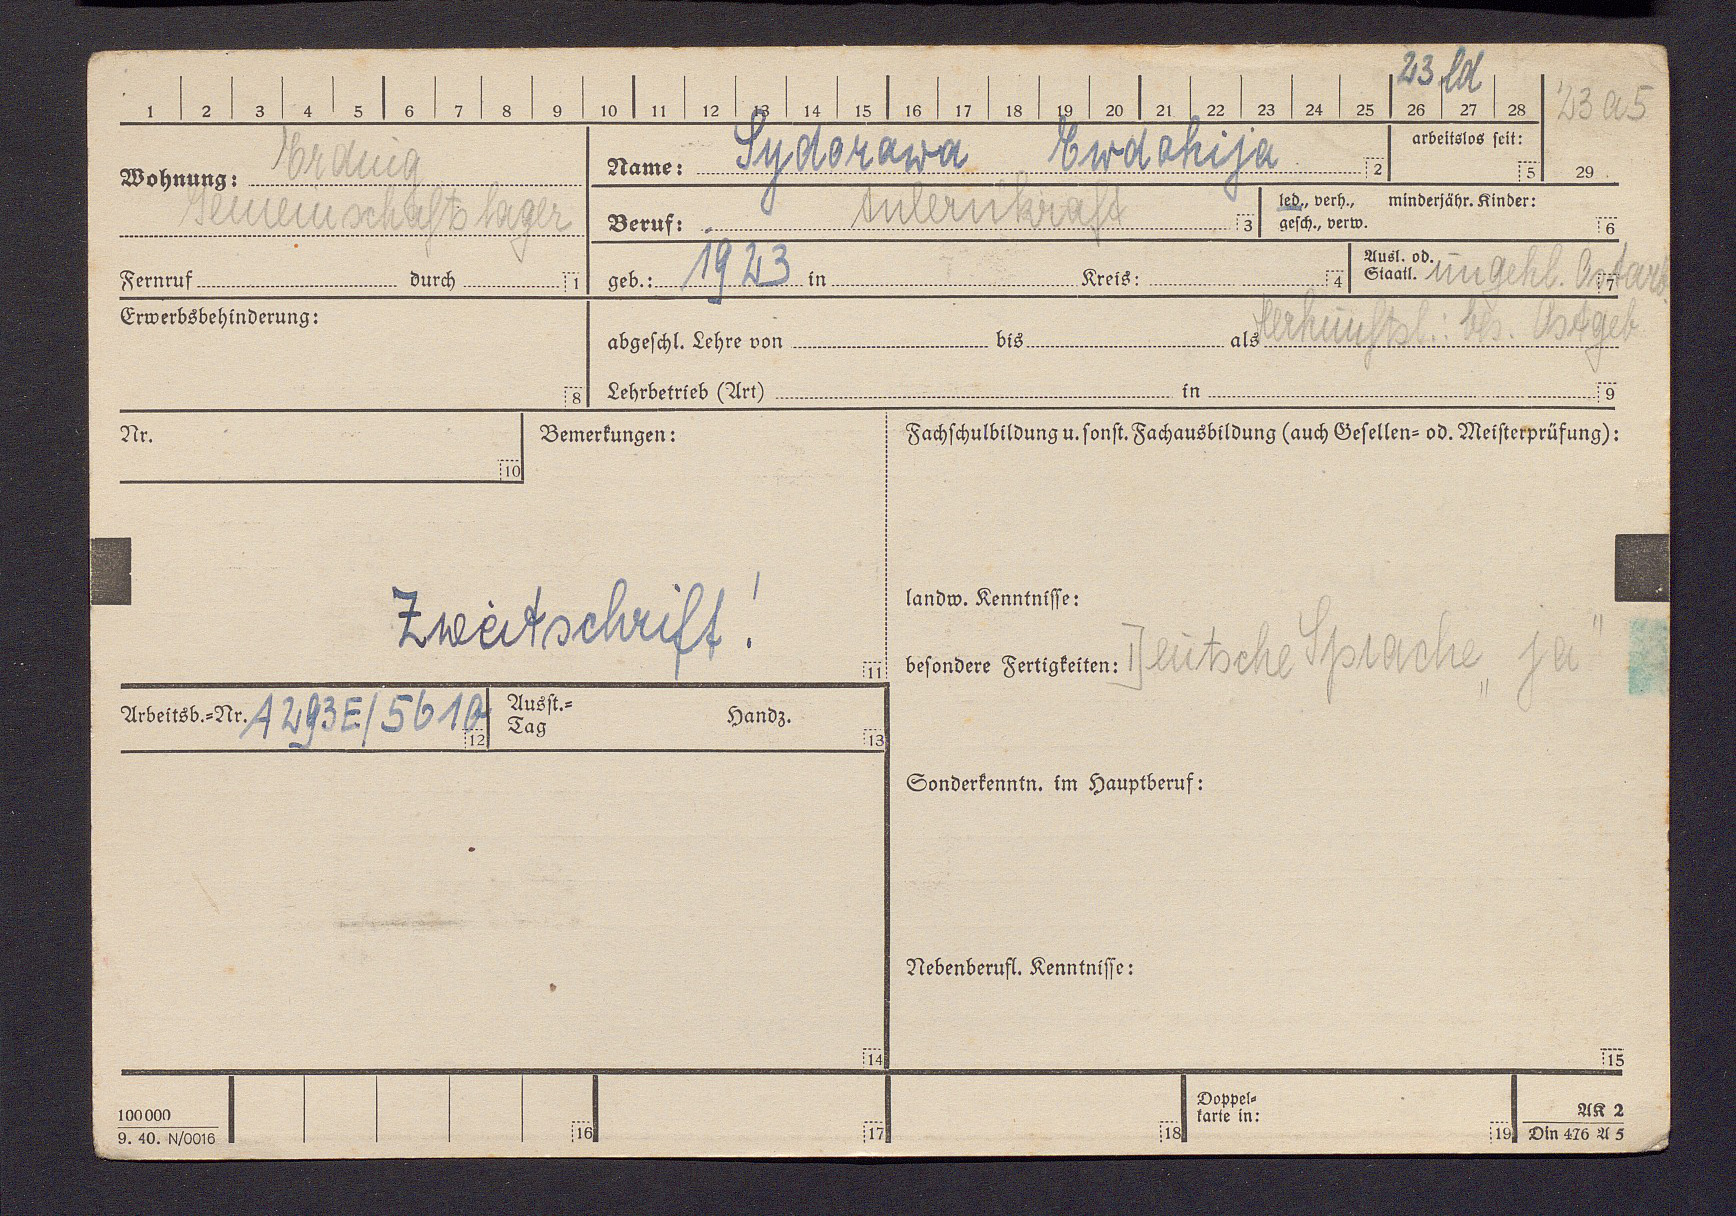 23 ld
1 2 3 4 5 6 7 8 9 10 11 12 13 14 15 16 17 18 19 20 21 22 23 24 25 26 27 28
23 a5
Wohnung: Erding
Gemeinschaftslager
Fernruf durch 1
Name: Sydorawa Ewdokija 2
arbeitslos seit: 5
29
Beruf: Anlernkraft 3
led., verh., minderjähr. Kinder:
gesch., verw. 6
geb.: 1923 in Kreis: 4
Ausl. od.
Staatl. ungekl. Ostarb. 7
Erwerbsbehinderung: 8
Herkunftsl.: bes. Ostgeb
abgeschl. Lehre von bis als
Lehrbetrieb (Art) in 9
Nr. 10
Bemerkungen:
Zweitschrift! 11
Fachschulbildung u. sonst. Fachausbildung (auch Gesellen- od. Meisterprüfung):
landw. Kenntnisse:
besondere Fertigkeiten: Deutsche Sprache „ja"
Arbeitsb.-Nr. A 293E/5610 12
Ausst.-
Tag Handz. 13
Sonderkenntn. im Hauptberuf:
Nebenberufl. Kenntnisse:
14
15
100 000
9. 40. N/0016
16
17
18
Doppel-
karte in: 19
AK 2
Din 476 A 5